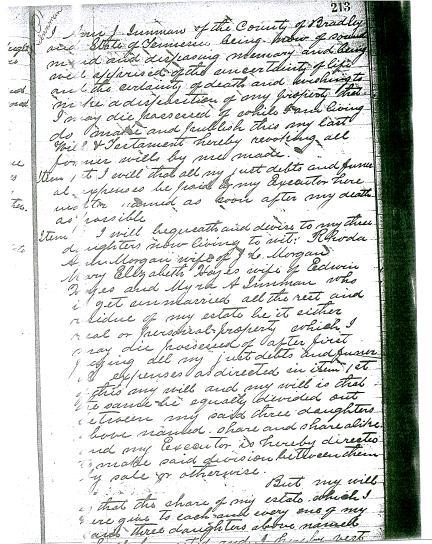 213
Inman
I J Inman of the County of Bradley
and State of Tennessee being now of sound
mind and disposing memory and being
well apprised of the uncertainty of life
and the certainty of death and wishing to
make a disposition of my property that
I may die possessed of while I am living
do make and publish this my last
Will & Testament hereby revoking all
former wills by me made.
Item 1st I will that all my just debts and funer
al expenses be paid by my Executor here
named as soon after my death
as possible
Item I will bequeath and devise to my three
daughters now living to wit: Rhoda
A Morgan wife of J C Morgan
Mary Ellizabeth Hayes wife of Edwin
Hayes and Myra A Inman who
is yet unmarried all the rest and
residue of my estate be it either
real or personal property which I
may die possessed of after first
paying all my just debts and funer
al expenses as directed in item 1st
of this my will and my will is that
the same be equally divided out
between my said three daughters
above named share and share alike
and my Executor is hereby directed
to make said division between them
by sale or otherwise.
But my will
is that the share of my estate which I
here give to each and every one of my
said three daughters above named